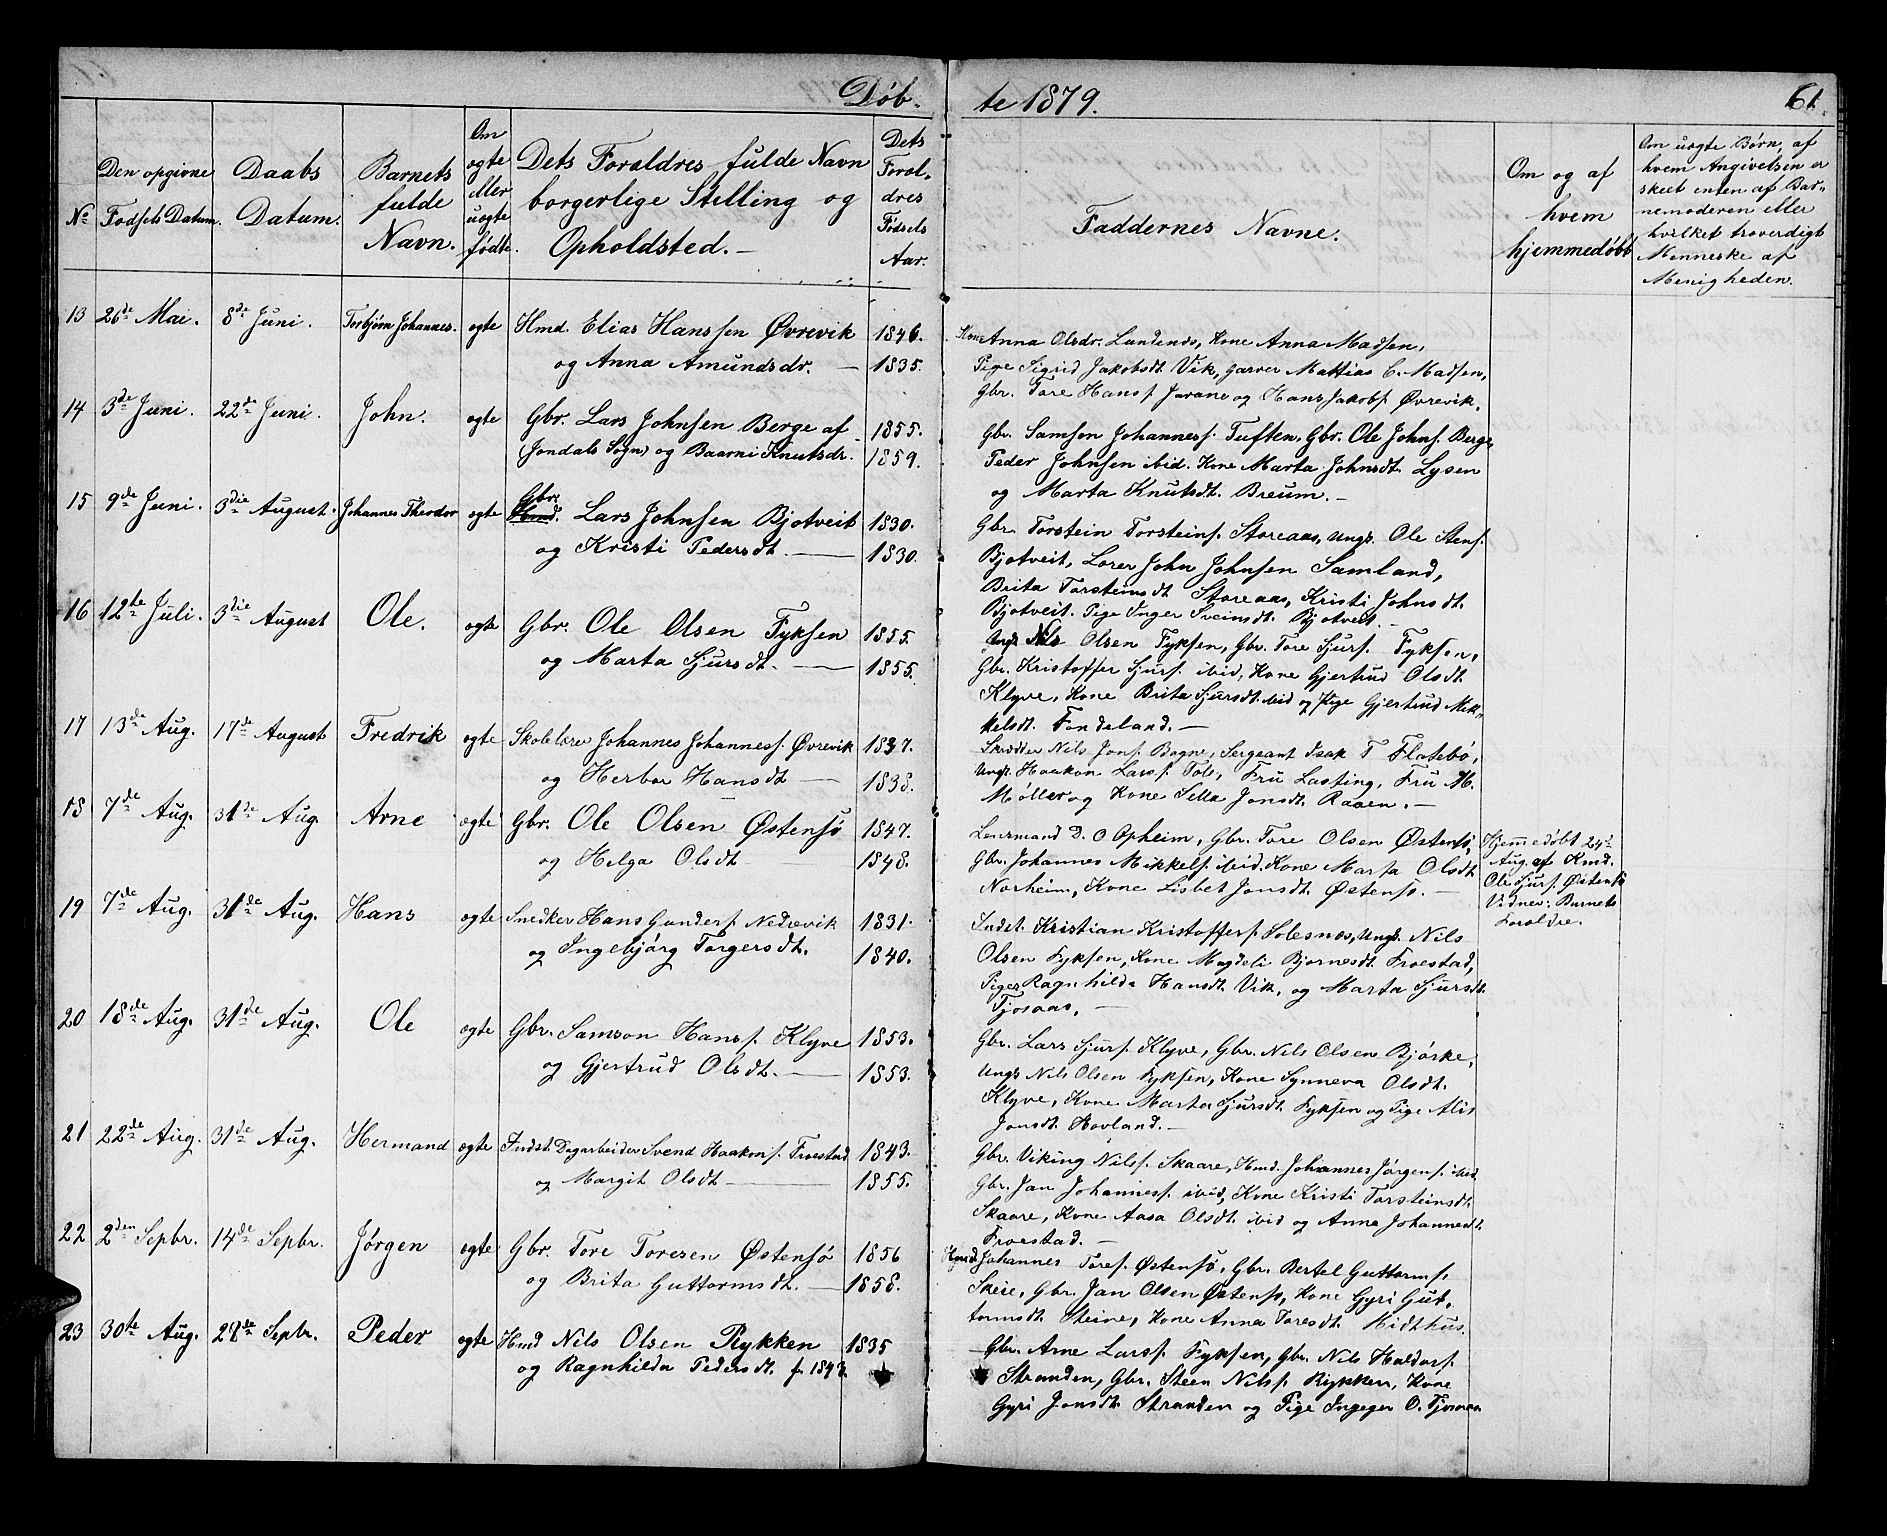 Døb-
te 1879.
61.
No
Den opgivne
Fødsels Datum.
Daabs
Datum.
Barnets
fulde
Navn.
Om
ægte
eller
uægte
fødte.
Dets Forældres fulde Navn
borgerlige Stilling og
Opholdsted. —
Dets
Foræl-
dres
Fødsels
Aar.
Faddernes Navne.
Om og af
hvem
hjemmedøbt
Om uægte Børn, af
hvem Angivelsen er
skeet enten af Bar-
nemoderen eller
hvilket troværdigt
Menneske af
Menigheden.
13 26de Mai. 8de Juni. Torbjørn Johannes. ægte Hmd. Elias Hanssen Øvrevik 1846.
og Anna Amundsdr. — 1835.
Kone Anna Olsdr. Lundenes, Kone Anna Madsen,
Pige Sigrid Jakobsdt Vik, garver Mattias C. Madsen,
Gbr. Tore Hanss. Jarane og Hans Jakobs. Øvrevik.
14 3de Juni. 22de Juni. John. ægte Gbr. Lars Johnsen Berge af 1855.
(Jondals Sogn) og Baarni Knutsdr. 1859.
Gbr. Samson Johanness. Tuften, Gbr. Ole Johns. Berge
Peder Johnsen ibid. Kone Marta Johnsdt. Lysen
og Marta Knutsdt. Breum. —
15 9de Juni. 3die August. Johannes Theodor ægte Gbr. Hmd. Lars Johnsen Bjotveit 1830.
og Kristi Pedersdt. — 1830.
Gbr. Torstein Torsteins. Storeaas, Ungk. Ole Stens.
Bjotveit, Lærer John Johnsen Samland,
Brita Torsteinsdt Storeaas, Kristi Johnsdt.
Bjotveit. Pige Inger Sveinsdt. Bjotveit. —
16 12te Juli. 3die August Ole. ægte Gbr. Ole Olsen Fyksen 1855.
og Marta Sjursdt. — 1855.
Ungk Nils Olsen Fyksen, Gbr. Tore Sjurs. Fyksen,
Gbr. Kristoffer Sjurs. ibid, Kone Gjertrud Olsdt.
Klyve, Kone Brita Sjursdt. ibid og Pige Gjertrud Mik-
kelsdt. Fondeland. —
17 13de Aug. 17de August Fredrik ægte Skolelærer Johannes Johanness. Øvrevik 1837.
og Herbor Hansdt — 1838.
Skrædder Nils Jons. Bogne, Sergeant Isak T Flatebø,
Ungk. Haakon Larss. Tolo, Fru Lasting, Fru M.
Møller og Kone Silla Jonsdt. Raaen. —
18 7de Aug. 31de Aug Arne ægte Gbr. Ole Olsen Østensø 1847.
og Helga Olsdt 1848.
Lensmand D. O Opheim, Gbr. Tore Olsen Østensø,
Gbr. Johannes Mikkels. ibid, Kone Marta Olsdt
Norheim, Kone Lisbet Jonsdt. Østensø. —
Hjemmedøbt 24de
Aug. af Kmd.
Ole Sjurs. Østensø
Vidner: Barnets
Forældre.
19 7de Aug. 31de Aug. Hans ægte Snedker Hans Gunders. Nedrevik 1831.
og Ingebjørg Torgersdt. 1840.
Indst. Kristian Kristoffers. Solesnes, Ungk. Nils
Olsen Fyksen, Kone Magdeli Bjørnesdt. Froestad,
Piger Ragnhilda Hansdt. Vik, og Marta Sjursdt.
Tjosaas, —
20 18de Aug. 31de Aug. Ole ægte Gbr. Samson Hans s. Klyve 1853.
og Gjertrud Olsdt. — 1853.
Gbr. Lars Sjurs. Klyve, Gbr. Nils Olsen Bjørke,
Ungk Nils Olsen Fyksen, Kone Synneva Olsdt.
Klyve, Kone Marta Sjursdt. Fyksen og Pige Alis
Jonsdt. Hovland. —
21 22de Aug. 31de Aug. Hermand ægte Indst. Dagarbeider Svend Haakons. Froestad 1843.
og Margit Olsdt — 1855.
Gbr. Viking Nilss. Skaare, Hmd. Johannes Jørgens. ibid
Gbr. Jan Johanness. ibid, Kone Kristi Torsteinsdt.
Skaare, Kone Aasa Olsdt. ibid og Anna Johannesdt.
Froestad. —
22 2den Sepbr. 14de Sepbr. Jørgen ægte Gbr. Tore Toresen Østensø 1856
og Brita Guttormsdt. — 1858.
Hmd. Johannes Tores. Østensø, Gbr. Bertel Guttorms.
Skeie, Gbr. Jan Olsen Østensø, Kone Gyri Gut-
tormsdt Steine, Kone Anna Toresdt. Midthus.
23 30te Aug. 28de Sepbr. Peder ægte Hmd Nils Olsen Rykken 1835
og Ragnhilda Pedersdt. f. 1843.
— Gbr. Arne Larss. Fyksen, Gbr. Nils Haldors.
Stranden, Gbr. Steen Nilss. Rykken, Kone
Gyri Jonsdt. Stranden og Pige Ingeger O.